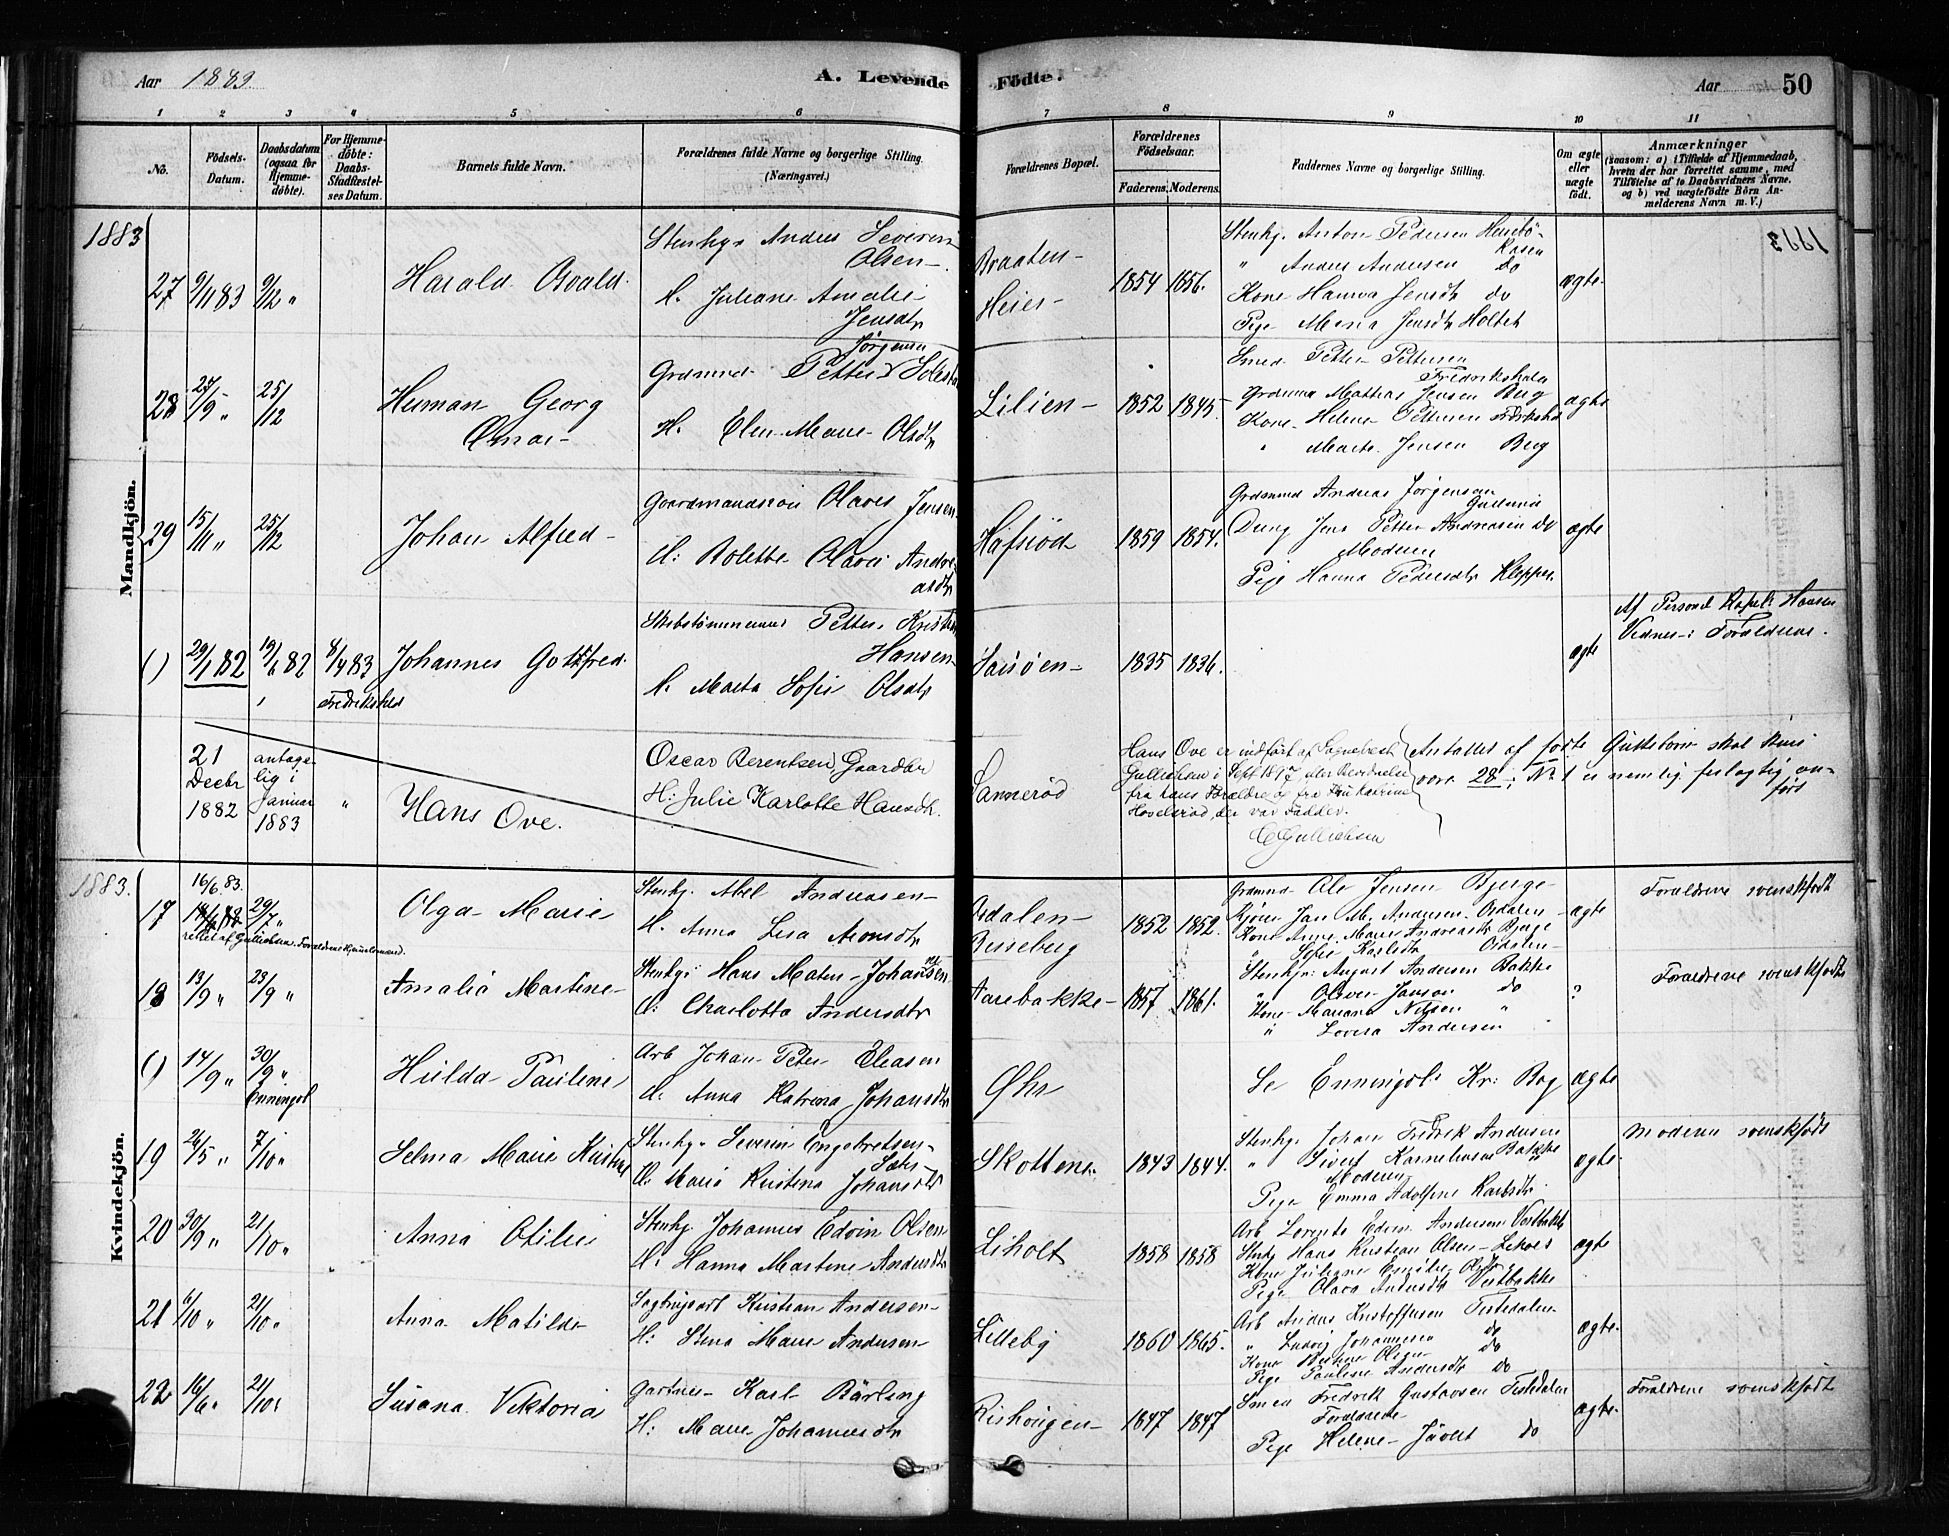 Aar 1883.
A. Levende Födte.
Aar 50
1 2 3 4 5 6 7 8 9 10 11
No.
Födsels-Datum.
Daabsdatum (ogsaa for Hjemme-döbte).
For Hjemme-döbte: Daabs-Stadfæstel-ses Datum.
Barnets fulde Navn.
Forældrenes fulde Navne og borgerlige Stilling. (Næringsvei.)
Forældrenes Bopæl.
Forældrenes Födselsaar.
Faderens. Moderens.
Faddernes Navne og borgerlige Stilling.
Om ægte eller uægte födt.
Anmærkninger
(saasom: a) i Tilfælde af Hjemmedaab,
hvem der har forrettet samme, med
Tilföielse af to Daabsvidners Navne.
og b) ved uægtefödte Börn An-
melderens Navn m. V.)
Mandkjön.
1883
27 9/11 83 9/12 "
Harald Osvald
Stenhgr Anders Severin
Olsen
H. Juliane Amalie
Jensdtr
Braaten-
Heier-
1854 1856.
Stenhg. Anton Pedersen
" Anders Andersen do
Kone Hanna Jensdtr do
Pige Maria Jensdtr Holtet
ægte
28 27/9 " 25/12
Herman Georg
Omar
Jörgensen
Grdmnd Petter
H. Elen Marie Olsdtr
Lilien
1852 1845
Smed Petter Pettersen
Fredrikshald
Grdmnd Mathias Jensen Berg
Kone Helene Pettersen Fredrikshd
" Marte Jensen Berg
ægte
29 15/11 " 25/12
Johan Alfred
Gaardmandssön Olaves Jensen
H: Rolette Olava Andre-
asdtr
Hafsröd
1859 1854.
Grdmnd Andreas Jörgensen
Dreng Jens Petter Andreasen do
Moderen
Pige Hanna Pedersdtr Klepper
ægte
() 29/1 82 19/6 82 8/4 83
Fredrikshald
Johannes Gottfred
Skibstömmermd Petter Kristian
Hansen
H. Marta Sofie Olsdtr
1835 1836.
ægte
Af Personel Kapel: Hansen
Vidner: Forældrene.
21
Decbr
1882
antage-
lig i
Januar
1883
"
Hans Ove.
Oscar Berentsen, Gaardbr
H: Julie Karlotte Hansdtr.
Sannerød
Hans Ove er indfört af Sogneprest
Gullichsen i Sept 1897 efter Beretnelse
fra hans Forældre og fra Fru Katrine
Hovelsrød, der var Fadder.
C Gullichsen
Antallet af födte Guttebörn skal kuns
være 28; No 1 er nemlig feilagtig an-
fört
Kvindekjön.
1883.
17 16/6. 83. 29/7 "
rettet af Gullichsen. Forældrene hjemlemand.
Olga Marie
Stenhg. Abel Andreasen
H. Anna Lisa Aronsdtr
Osdalen
Bisseberg
1852 1852.
Grdmnd Ole Jensen Bjerge
Jan M. Andersen Osdalen
Kone Anne Marie Andreasdtr Bjerge
" Sofie Karlsdtr Osdalen
ægte
Forældrene svenskfödt
18 13/9 " 23/9 "
Amalia Martine
Stenhg: Hans Mater Johansen
H: Charlotta Andersdtr
Aarebakke
1857 1861.
Stenhgr: August Andersen Bakke
" Oliver Jansen do
Kone Mariane Nilsen "
" Lovisa Andersen
?
Forældrene svenskfödt
() 14/9 " 30/9 "
Enningdl
Hulda Pauline
Arb Johan Peter Eliasen
H. Anna Katrina Johansdtr
Øhr
Se Enningdl: Kr: Bog
ægte
19 26/5 " 7/10 "
Selma Marie Kristine
Stenhg. Severin Engebretsen
H. Maria Kristina Johansdtr
Skottene
1843 1844.
Stenhg. Johan Fredrik Andersen
" Sivert Karneliusen Bakke
Moderen
Pige Emma Adolfine Karlsdtr
ægte
Moderen svenskfödt
20 30/9 " 21/10 "
Anna Otilie
Stenhg. Johannes Edvin Olsen
H. Hanna Martine Andersdtr
Liholt
1858 1858
Arb Lorents Edvin Andersen Vestbakke
Stenhg Hans Kristian Olsen Liholt
Kone Juliane Olsen
Pige Olava Andersdtr Vestbakke
ægte
21 6/10 " 21/10 "
Anna Matilde
Sagbrugsarb Kristian Andersen
H: Stina Marie Andersen
Lilleby
1860 1865.
Arb Anders Kristoffersen Tistedalen
" Ludvig Johannesen do
Kone Olsen do
Pige Pauline Andersdtr do
ægte
22 16/6 " 21/10 "
Susana Viktoria
Gartner Karl Bärling
H: Marie Johannesdtr
Rishougen
1847 1847
Smed Fredrik Gustavsen Tistedalen
Forældrene
Pige Helene do
ægte
Forældrene svenskfödt